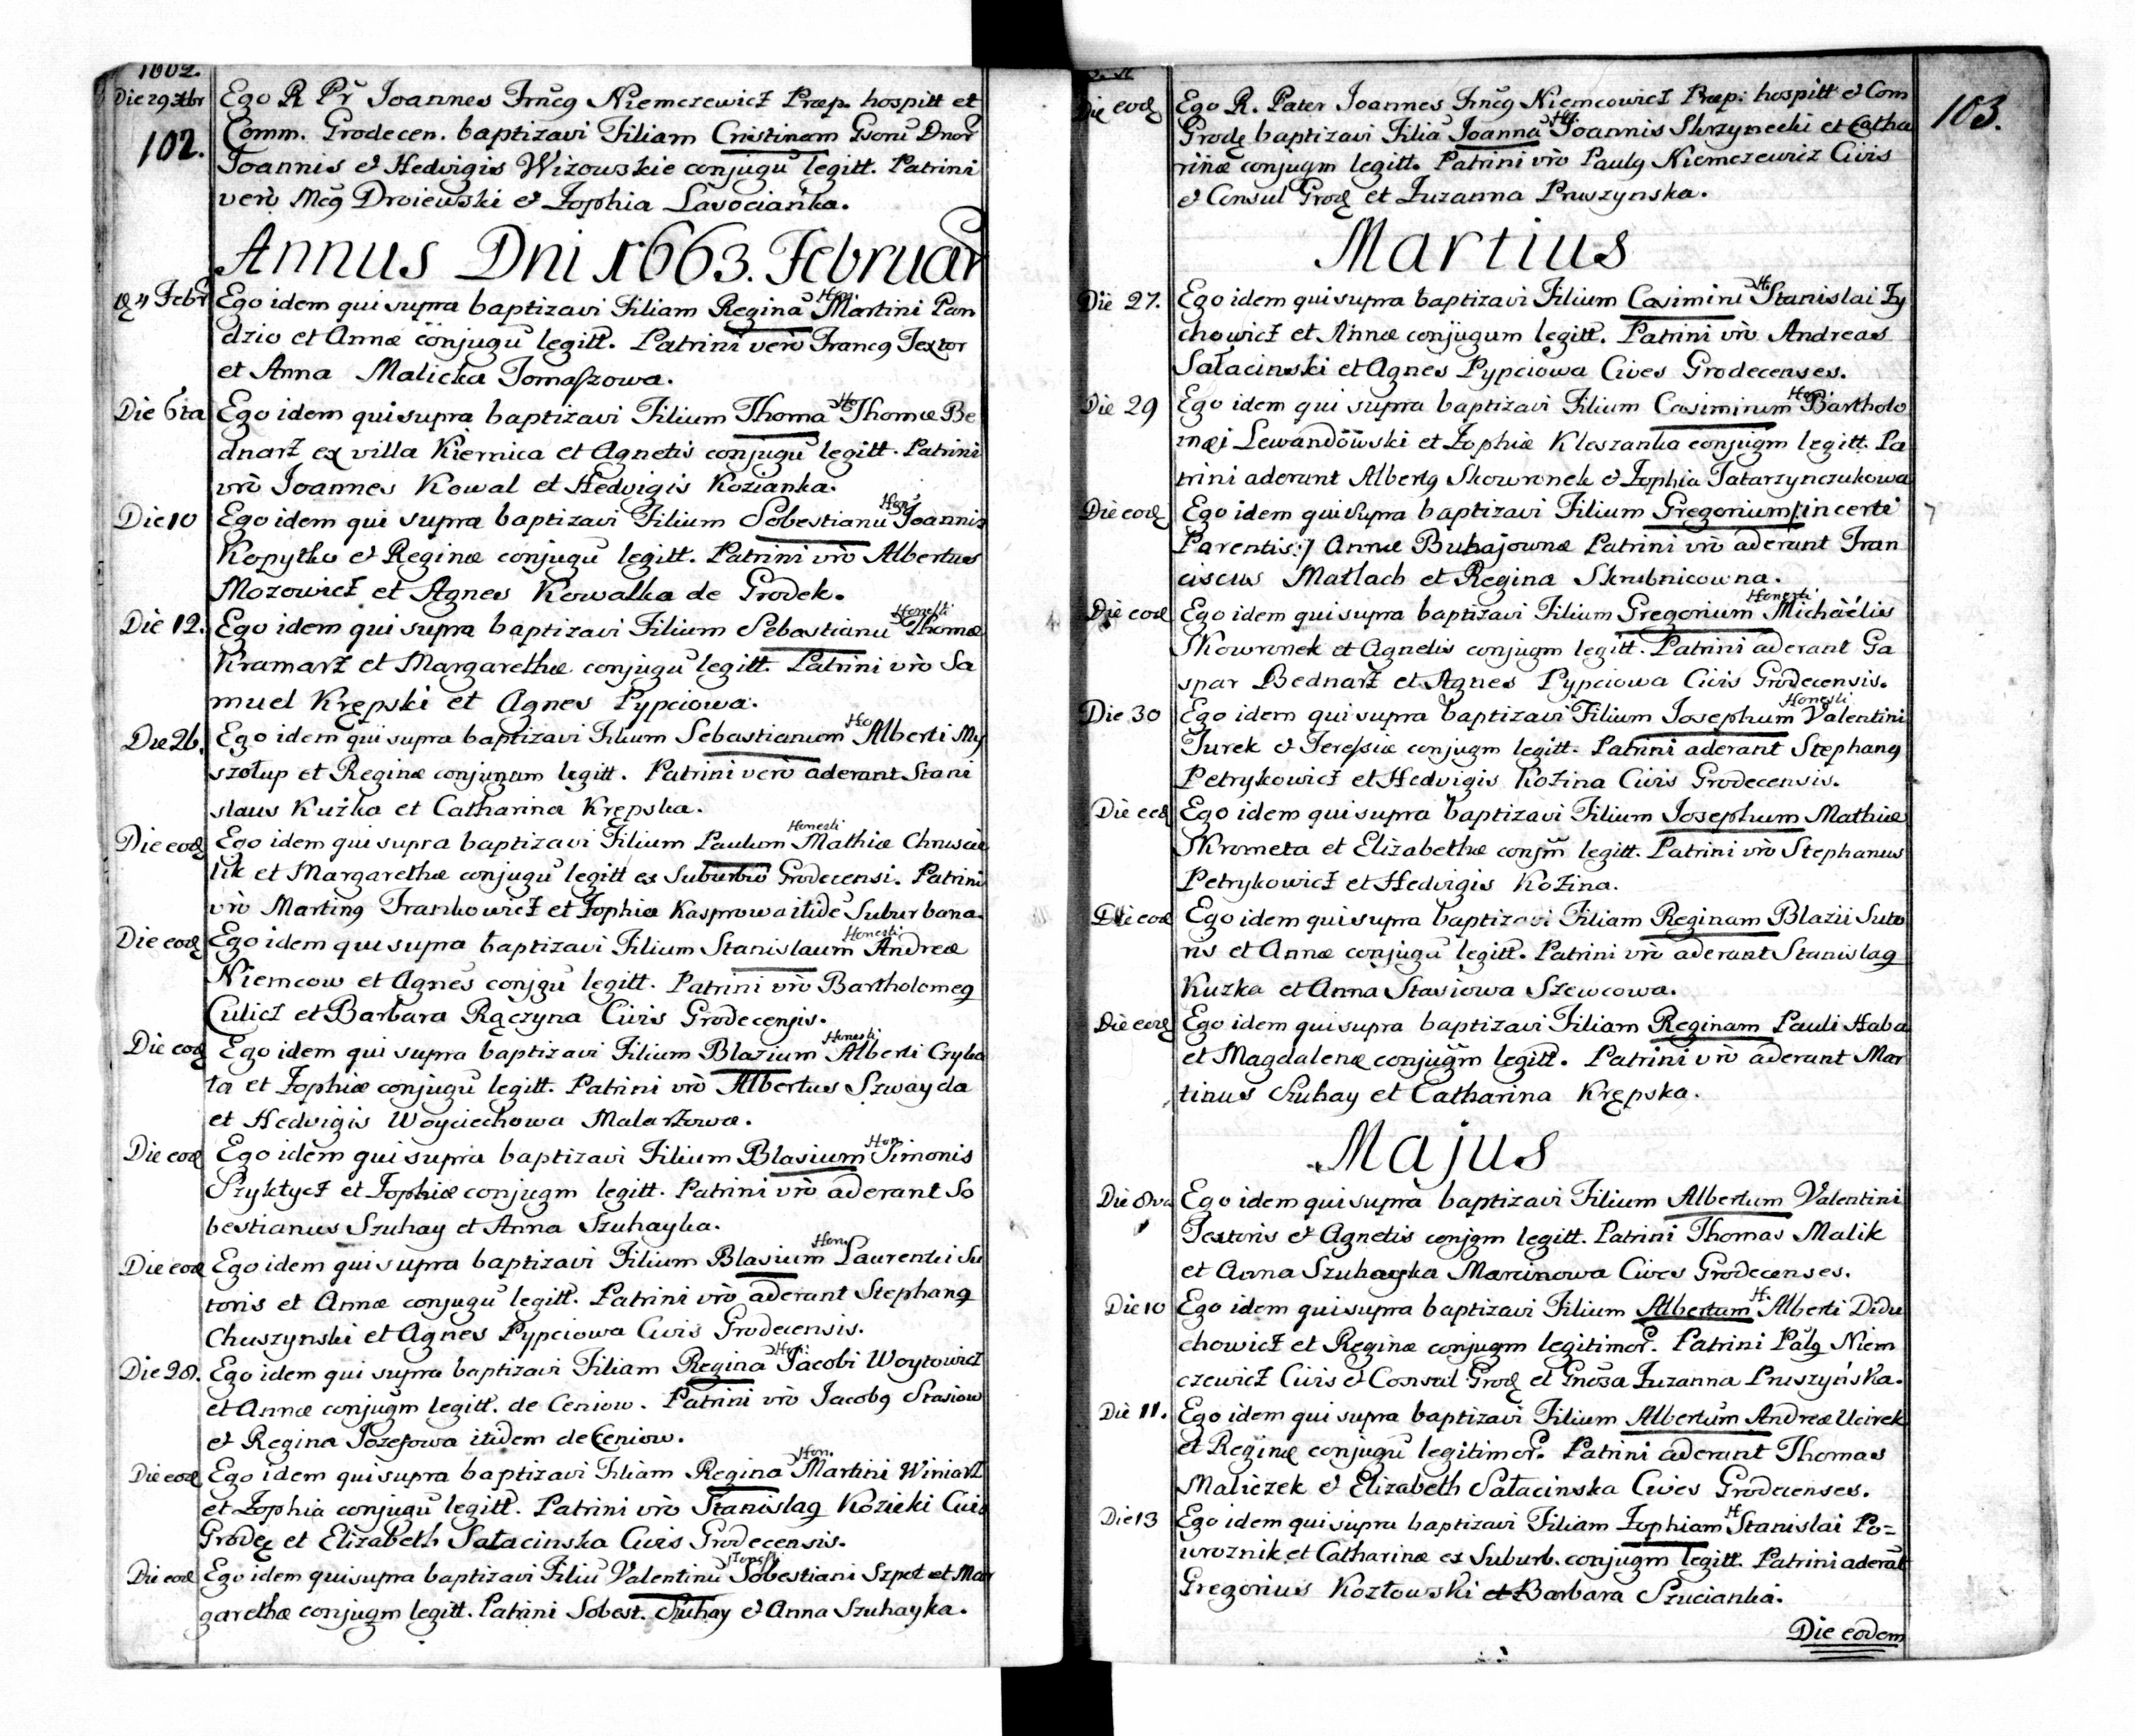 1662.
Die 29 Xbr Ego R Pr Joannes Frncq Niemczewicz Præp. hospitt et
102. Comm. Grodecen. baptizavi Filiam Cristinam Gsorū Dnor
Joannis et Hedvigis Wizowskie conjugū legitt. Patrini
verò Mcq Droiewski et Zophia Lasocianka.
Annus Dni 1663. Februar
Ego idem qui supra baptizavi Filiam Reginā Hon. Martini Pan
dzio et Annæ conjugū legitt. Patrini verò Francq Textor
et Anna Malicka Tomaszowa.
Die 6ta Ego idem qui supra baptizavi Filium Thomā Ho Thomæ Be
dnarz ex villa Kiernica et Agnetis conjugū legitt. Patrini
vrò Joannes Kowal et Hedvigis Kozianka.
Die 10 Ego idem qui supra baptizavi Filium Sobestianū Hon Joannis
Kopytko et Reginæ conjugū legitt. Patrini vrò Albertus
Mozowicz et Agnes Kowalka de Grodek.
Die 12. Ego idem qui supra baptizavi Filium Sebastianū Honesti Thomæ
Kramarz et Margarethæ conjugū legitt. Patrini vrò Sa
muel Krępski et Agnes Pypciowa.
Die 26. Ego idem qui supra baptizavi Filium Sebastianum Ho Alberti My
szołup et Reginæ conjugum legitt. Patrini verò aderant Stani
slaus Kuźka et Catharina Krępska.
Die eod Ego idem qui supra baptizavi Filium Paulum Honesti Mathiæ Chrusci
lik et Margarethæ conjugū legitt ex Suburbio Grodecensi. Patrini
vrò Martinq Frankowicz et Zophia Kasprowa itidē Suburbana.
Die eod Ego idem qui supra baptizavi Filium Stanislaum Honesti Andreæ
Niemcow et Agnes conjgū legitt. Patrini vrò Bartholomeq
Culicz et Barbara Rączyna Civis Grodecensis.
Die eod Ego idem qui supra baptizavi Filium Blazium Honesti Alberti Czyba
ta et Zophiæ conjugū legitt. Patrini vrò Albertus Szwayda
et Hedvigis Woyciechowa Malarzowa.
Die eod Ego idem qui supra baptizavi Filium Blasium Hon Simonis
Szyktycz et Zophiæ conjugm legitt. Patrini vrò aderant So
bestianus Szuhay et Anna Szuhayka.
Die eod Ego idem qui supra baptizavi Filium Blasium Hon Laurentii Su
toris et Annæ conjugū legitt. Patrini vrò aderant Stephanq
Chuszynski et Agnes Pypciowa Civis Grodecensis.
Die 28. Ego idem qui supra baptizavi Filiam Reginā Hon: Jacobi Woytowicz
et Annæ conjugm legitt. de Ceniow. Patrini vrò Jacobq Stasiow
et Regina Jozefowa itidem de Ceniow.
Die eod Ego idem qui supra baptizavi Filiam Reginā Hon. Martini Winiarz
et Zophia conjugū legitt. Patrini vrò Stanislaq Kozicki Civis
Grodeɛ et Elizabeth Sałacinska Civis Grodecensis.
Die eod Ego idem qui supra baptizavi Filiū Valentinū Honesti Sobestiani Szpot et Mar
garethæ conjugm legitt. Patrini Sobest. Szuhay et Anna Szuhayka.
Die eod Ego R. Pater Joannes Frncq Niemcowicz Præp: hospitt et Com
103.
Grod baptizavi Filiā Joannā Hon: Joannis Skrzynecki et Catha
rinæ conjugm legitt. Patrini vrò Paulq Niemczewicz Civis
et Consul Grod et Zuzanna Pruszynska.
Martius
Die 27. Ego idem qui supra baptizavi Filium Casimirū Ho Stanislai Zy
chowicz et Annæ conjugum legitt. Patrini vrò Andreas
Sałacinski et Agnes Pypciowa Cives Grodecenses.
Die 29 Ego idem qui supra baptizavi Filium Casimirum Hon. Bartholo
mæi Lewandowski et Zophiæ Kleszanka conjugm legitt. Pa
trini aderant Albertq Skowronek et Zophia Tatarzynczukowa
Die eod Ego idem qui supra baptizavi Filium Gregorium /: incerti
Parentis :/ Annæ Buhajownæ Patrini vrò aderant Fran
ciscus Matlach et Regina Skrubnicowna.
Die eod Ego idem qui supra baptizavi Filium Gregorium Honesti Michaëlis
Skowronek et Agnetis conjugm legitt. Patrini aderant Ga
spar Bednarz et Agnes Pypciowa Civis Grodecensis.
Die 30 Ego idem qui supra baptizavi Filium Josephum Honesti Valentini
Turek et Teressiæ conjugm legitt. Patrini aderant Stephanq
Petrykowicz et Hedvigis Kozina Civis Grodecensis.
Die eod Ego idem qui supra baptizavi Filium Josephum Mathiæ
Skrometa et Elizabethæ conjm legitt. Patrini vrò Stephanus
Petrykowicz et Hedvigis Kozina.
Die eod Ego idem qui supra baptizavi Filiam Reginam Blazii Suto
ris et Annæ conjugū legitt. Patrini vrò aderant Stanislaq
Kuzka et Anna Stasiowa Szewcowa.
Die eod Ego idem qui supra baptizavi Filiam Reginam Pauli Haba
et Magdalenæ conjugm legitt. Patrini vrò aderant Mar
tinus Szuhay et Catharina Krępska.
Majus
Die 8va Ego idem qui supra baptizavi Filium Albertum Valentini
Textoris et Agnetis conjgm legitt. Patrini Thomas Malik
et Anna Szuhayka Marcinowa Cives Grodecenses.
Die 10 Ego idem qui supra baptizavi Filium Albertum H. Alberti Didu
chowicz et Reginæ conjugm legitimor. Patrini Palq Niem
czewicz Civis et Consul Grod et Gnosa Zuzanna Pruszyńska.
Die 11. Ego idem qui supra baptizavi Filium Albertum Andreæ Ucirek
et Reginæ conjugū legitimor. Patrini aderant Thomas
Maliczek et Elizabeth Sałacinska Cives Grodecenses.
Die 13 Ego idem qui supra baptizavi Filiam Zophiam H Stanislai Po=
wroznik et Catharinæ ex Suburb. conjugm legitt. Patrini aderāt
Gregorius Kozłowski et Barbara Szucianka.
Die eodem